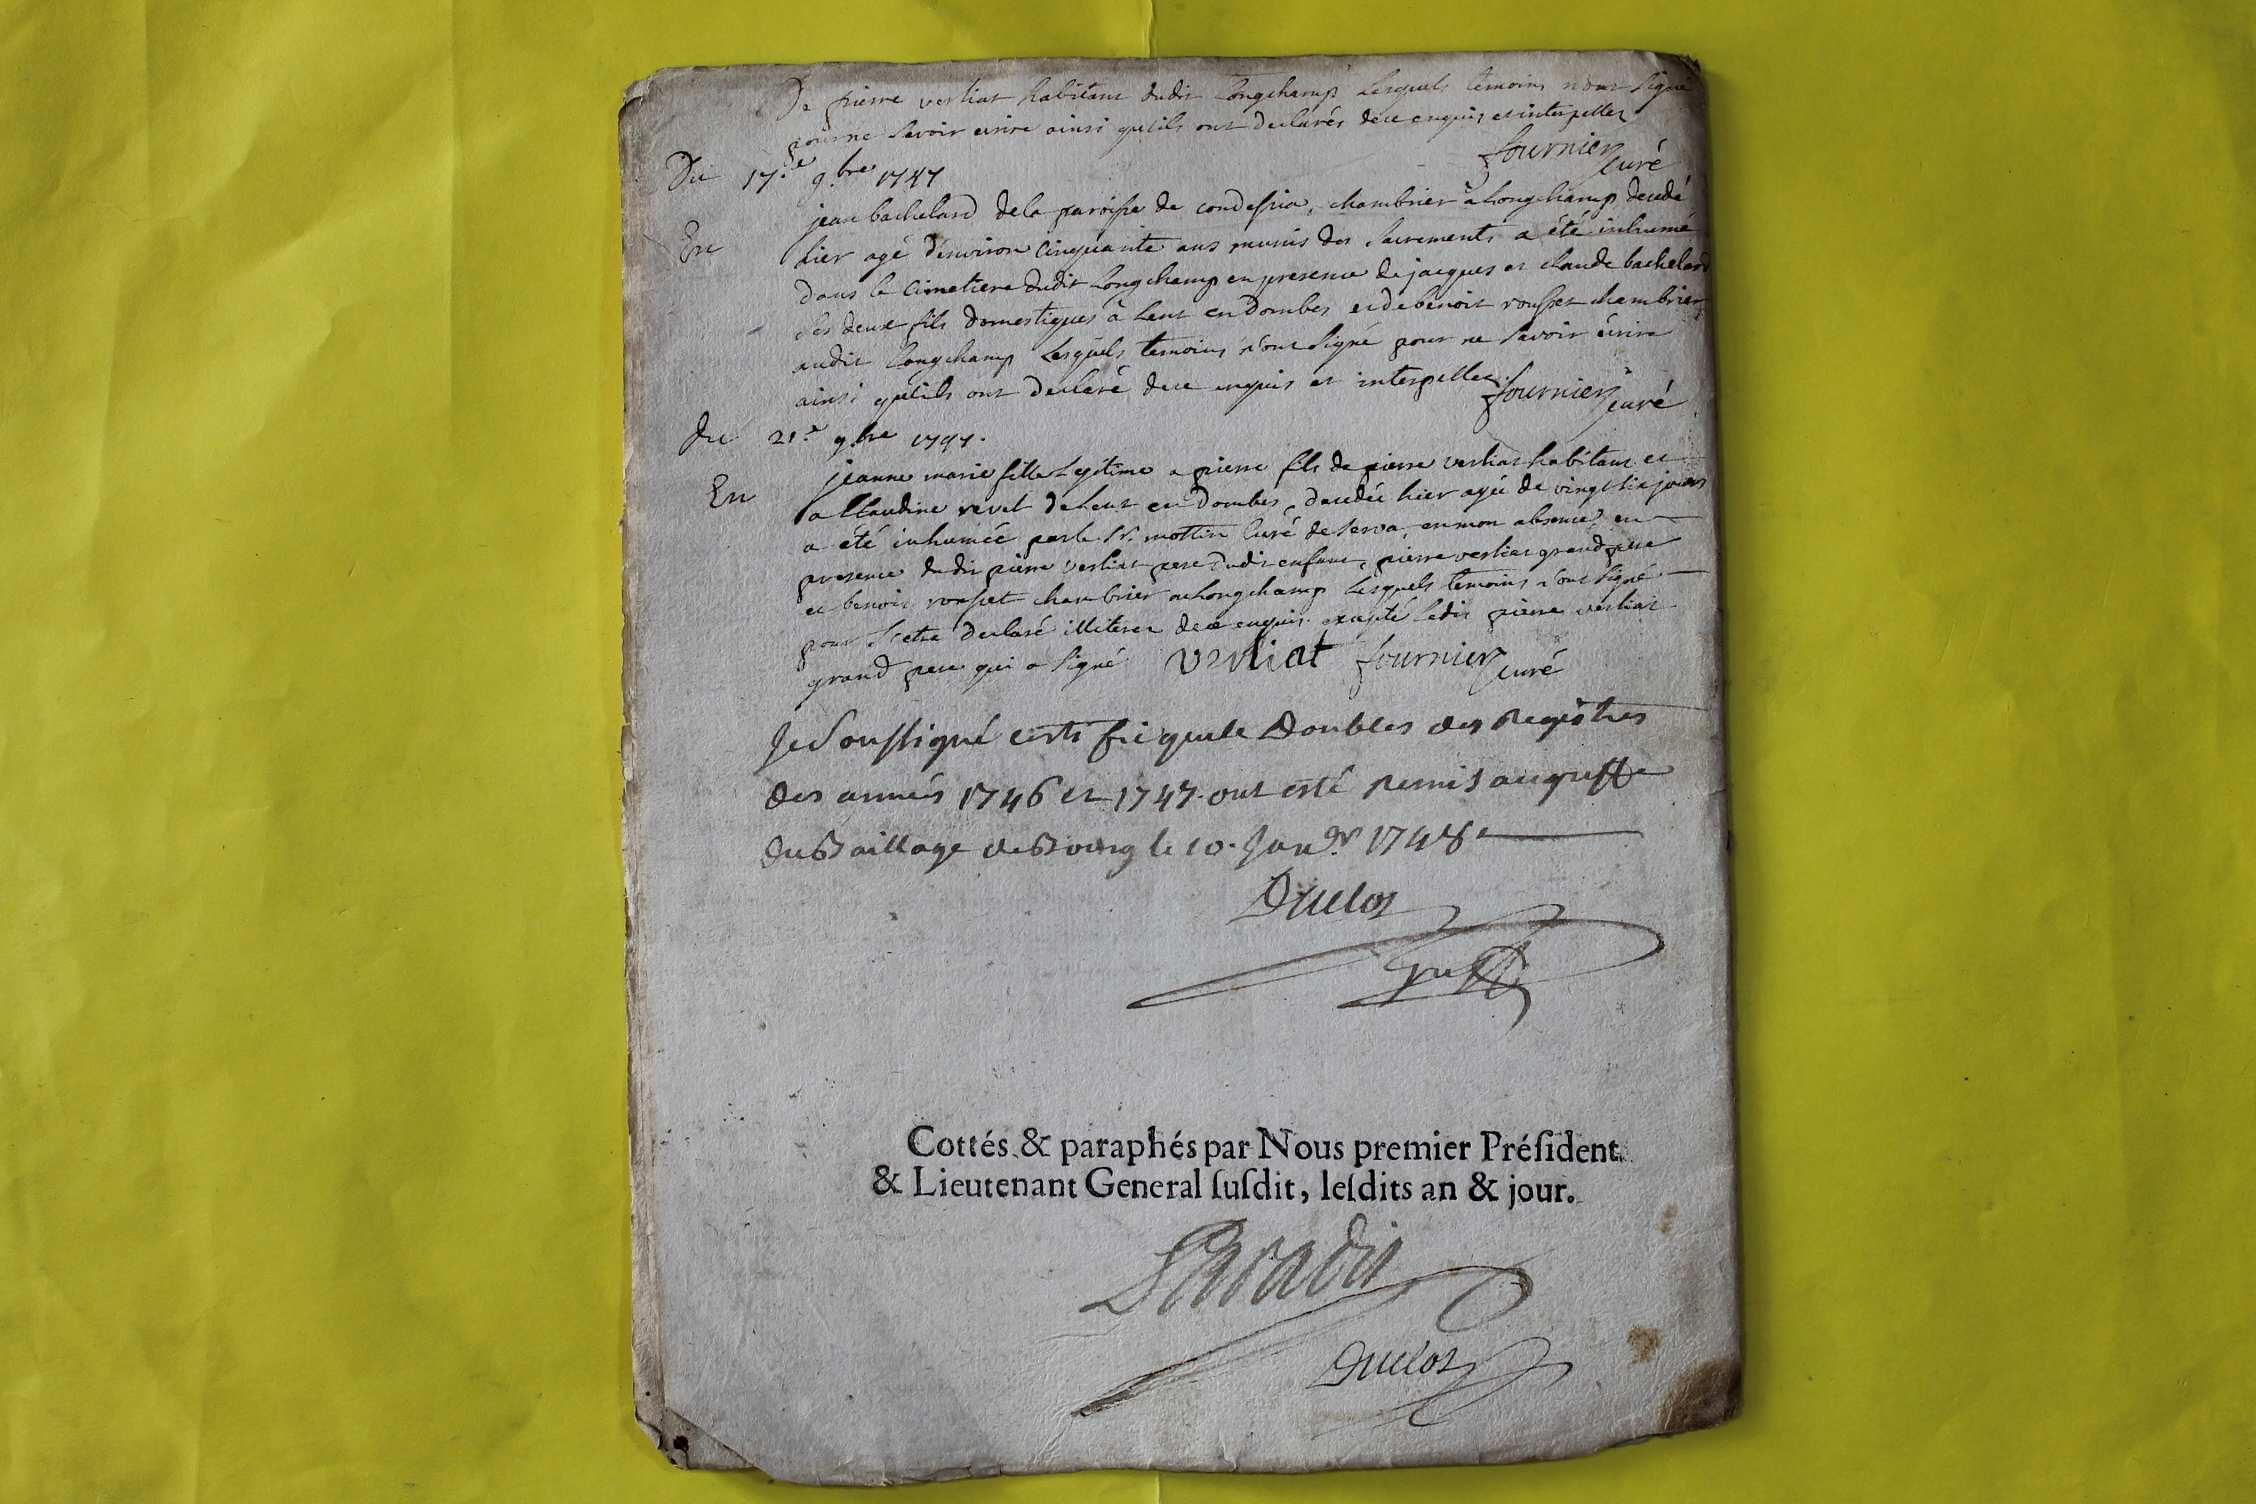 De pierre verliat habitant dudit Longchamp Lesquels temoins n'ont signé
pour ne savoir ecrire ainsi qu'ils ont declarés de ce enquis et interpellez
fournier curé
Du 17.e 9.bre 1747
En
jean bachelard de la paroisse de condessia, chambrier à Longchamp decedé
hier agé d'environ cinquante ans munis des sacrements a été inhumé
dans le cimetiere dudit Longchamp en presence de jacques et claude bachelard
ses deux fils domestiques à Lent en Dombes et de benoit rousset chambrier
audit Longchamp Lesquels temoins n'ont signé pour ne savoir écrire
ainsi qu'ils ont declaré de ce enquis et interpellez.
fournier curé
du 21.e 9.bre 1747.
En
jeanne marie fille Legitime a pierre fils de pierre verliat habitant et
a Claudine revel de Lent en Dombes, decedée hier agée de vingt six jours
a été inhumée par le Sr. mottin Curé de Serva, en mon absence, en
presence dudit pierre verliat pere dudit enfant, pierre verliat grand pere
et benoit rousset chambrier a Longchamp Lesquels temoins n'ont signé
pour s'etre declaré illiteré de ce enquis excepté ledit pierre verliat
grand pere qui a signé verliat fournier curé
Je Soussigné certifie que le Doubles des Registres
des années 1746 et 1747. ont esté Remis au greffe
du Baillage de Bourg le 10. Janv. 1748
Duclos
greff
Cottés & paraphés par Nous premier Préſident
& Lieutenant General ſuſdit, leſdits an & jour.
Paradis
Duclos